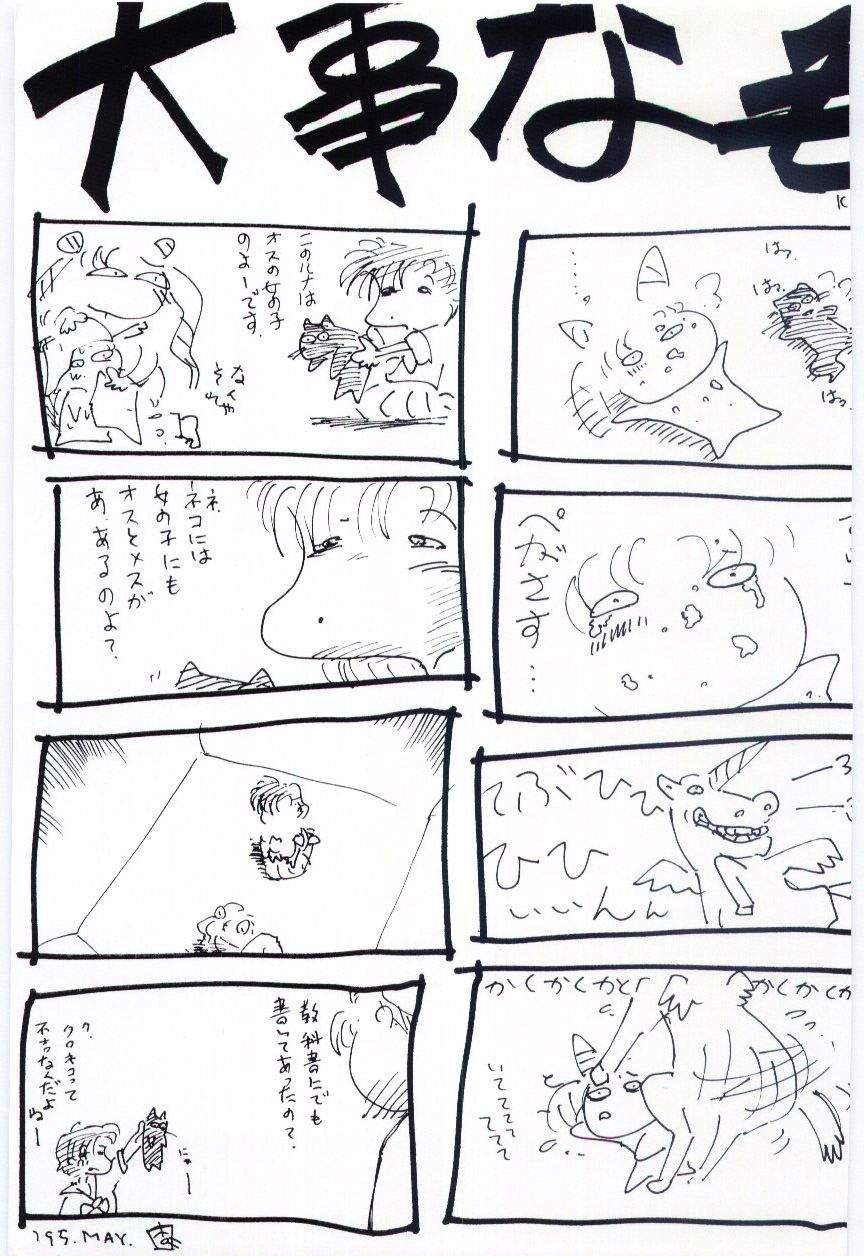 大事なも
はっ
はっ
はっ
………
ぺがさす…
てぶひひ
ひひ
いいんん
かくかくかく
かくかくか
いてててて
ててて
このルナは
オスの女の子
のよーです。
なんや
それ
ネ、
ネコには
女の子にも
オスとメスが
あ、あるのよ？
教科書にでも
書いてあったの？
ク、
クロネコって
不吉なんだよ
ねー
にゃー
'95.MAY.